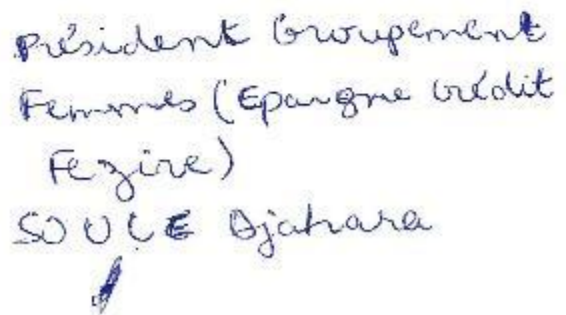 Président Groupement
Femmes (Epargne crédit
Fezire)
SOULE Djahara